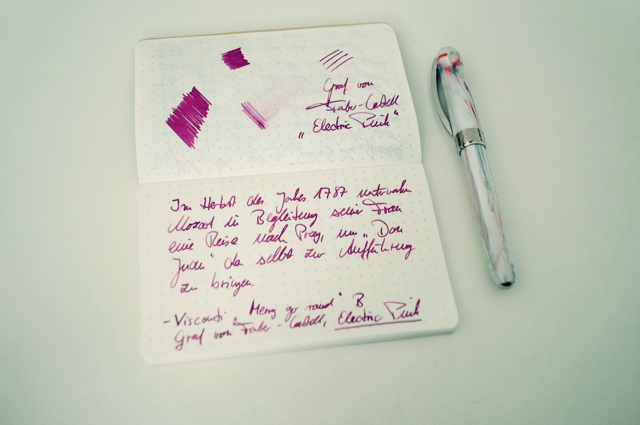 Graf von
Faber-Castell
„Electric Pink“
Im Herbst des Jahres 1787 unternahm
Mozart in Begleitung seiner Frau
eine Reise nach Prag, um „Don
Juan“ da selbst zur Aufführung
zu bringen.
- Visconti „Merry go round“ B
Graf von Faber-Castell, Electric Pink